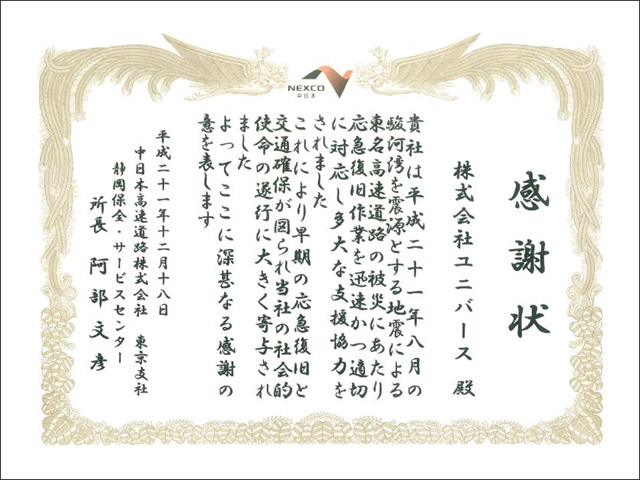 NEXCO
中日本
感謝状
株式会社ユニバース 殿
貴社は平成二十一年八月の
駿河湾を震源とする地震による
東名高速道路の被災にあたり
応急復旧作業を迅速かつ適切
に対応し多大な支援協力を
されました
これにより早期の応急復旧と
交通確保が図られ当社の社会的
使命の遂行に大きく寄与され
ました
よってここに深甚なる感謝の
意を表します
平成二十一年十二月十八日
中日本高速道路株式会社 東京支社
静岡保全・サービスセンター
所長 阿部文彦